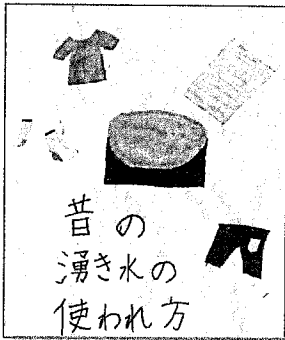 昔の
湧き水の
使われ方